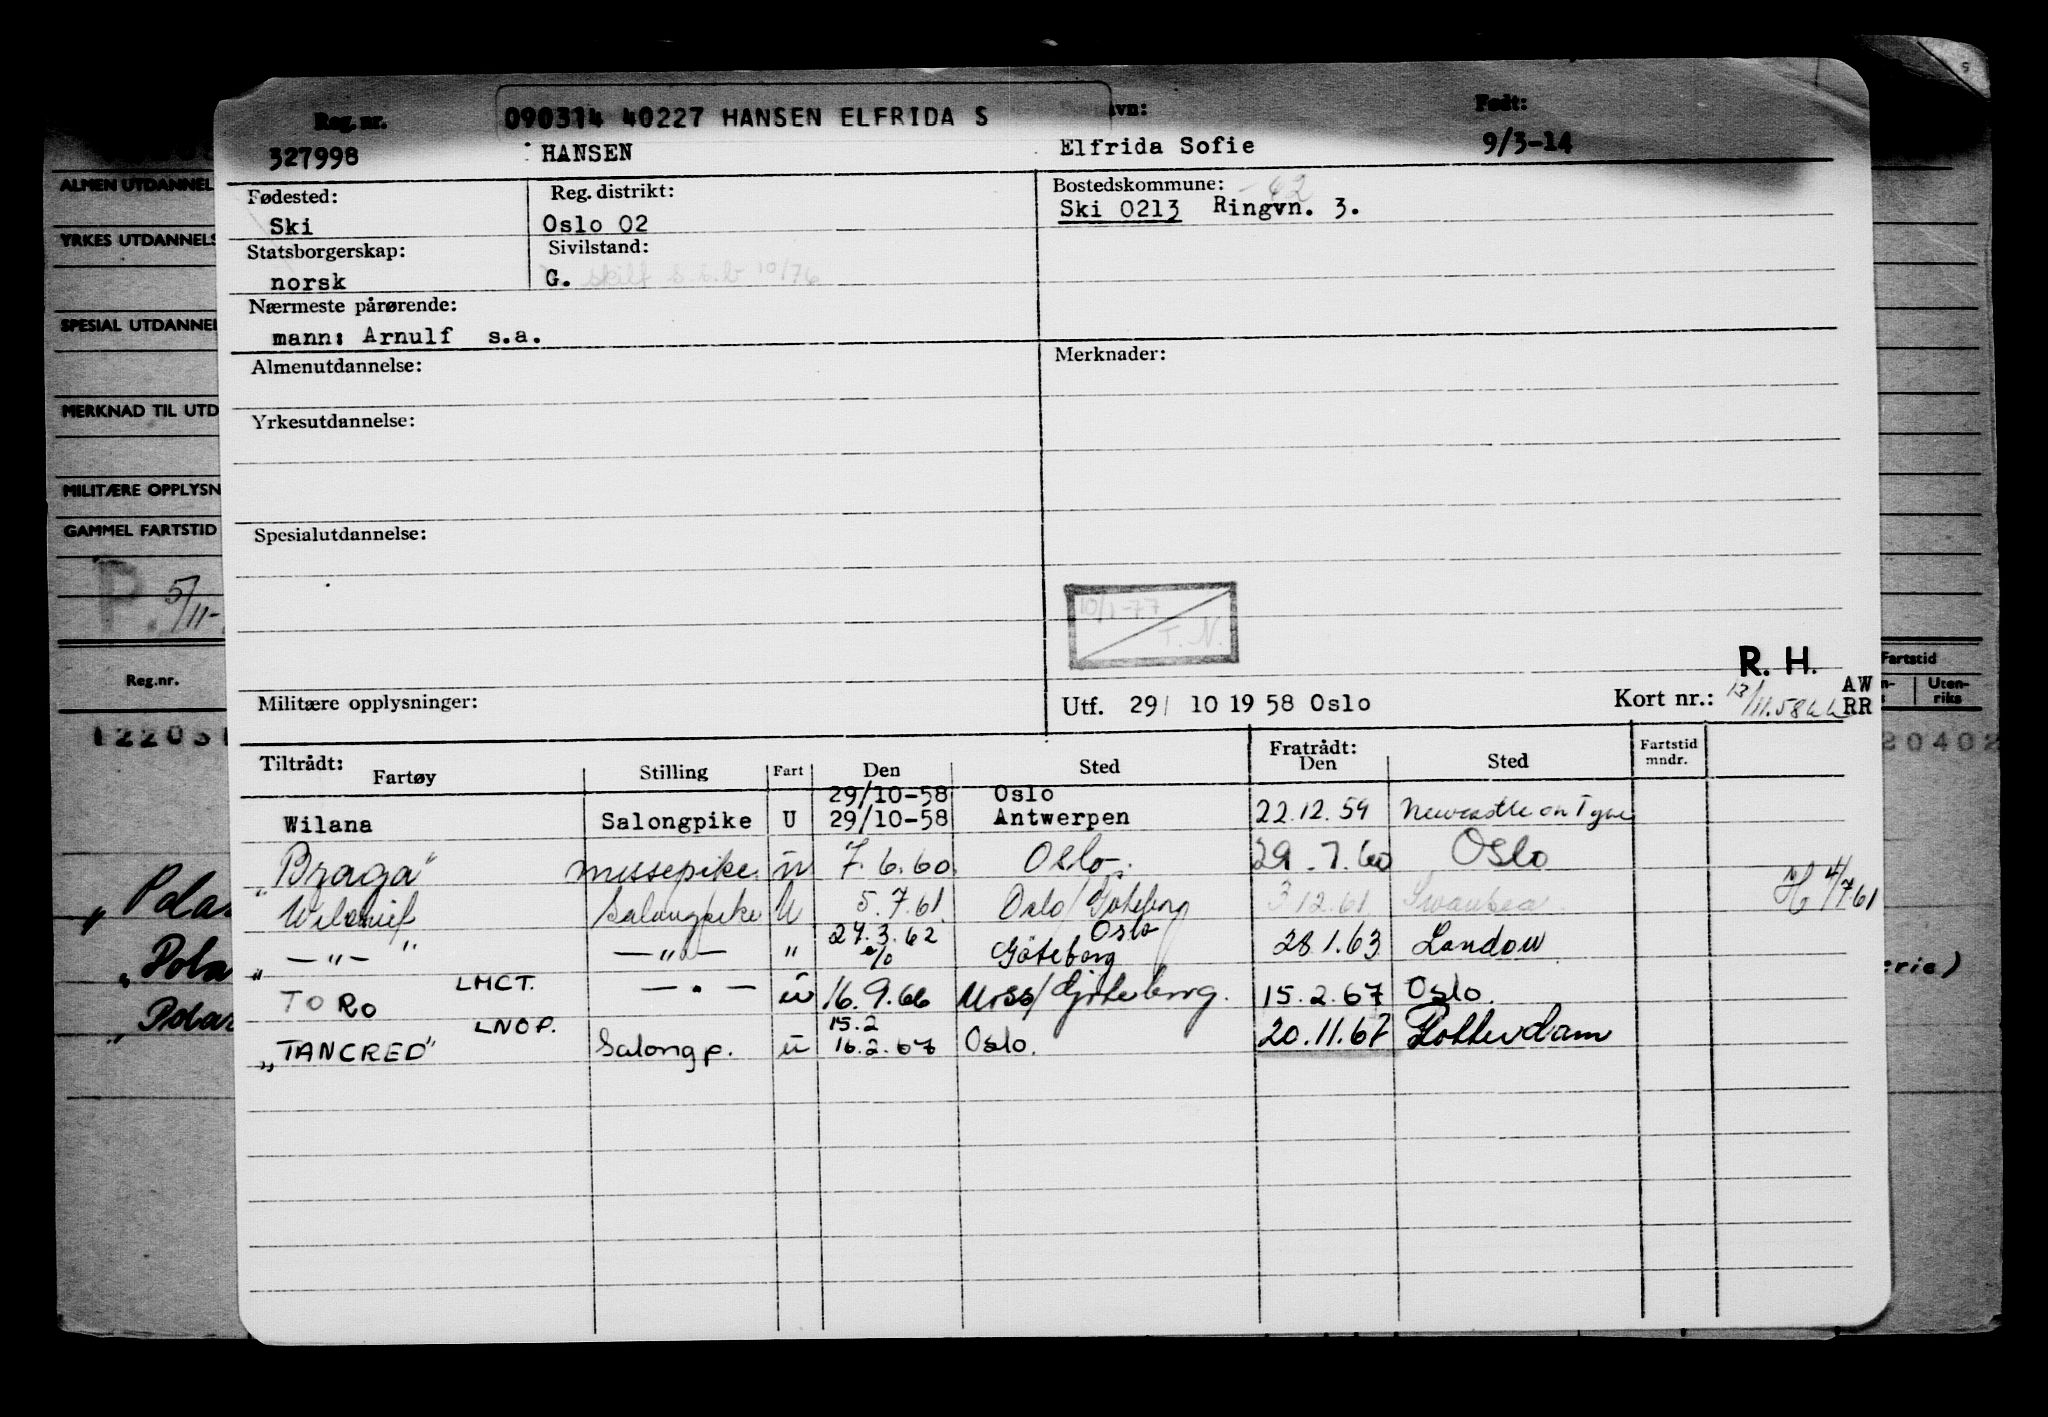 090314 40227 HANSEN ELFRIDA S
Reg. nr. Født:
327998 HANSEN Elfrida Sofie 9/3-14
Fødested: Reg. distrikt: Bostedskommune: -42
Ski Oslo 02 Ski 0213 Ringvn. 3.
Statsborgerskap: Sivilstand:
norsk G. skilt s.s.b 10/76
Nærmeste pårørende:
mann: Arnulf s.a.
Almenutdannelse: Merknader:
Yrkesutdannelse:
Spesialutdannelse:
10/1-77
T.N.
R. H.
Militære opplysninger: Utf. 29/ 10 19 58 Oslo Kort nr.: 13/11.58 AW
RR
Tiltrådt: Fratrådt: Fartstid
Fartøy Stilling Fart Den Sted Den Sted mndr.
29/10-58 Oslo
Wilana Salongpike U 29/10-58 Antwerpen 22.12.59 Newcastle on Tyne
"Braga" messepike ü 7.6.60 Oslo. 29.7.60 Oslo
Salongpike U 5.7.61 Oslo/Göteborg 3.12.61 Swansea H 4/7.61
27.3.62 Oslo
" — " — " — " — " Göteborg 28.1.63 London
TORO LMCT. — " — ü 16.9.66 Moss/Göteborg. 15.2.67 Oslo.
LNOP. 15.2
"TANCRED" Salongp. ü 16.2.67 Oslo. 20.11.67 Rotterdam
ALMEN UTDANNEL
YRKES UTDANNELS
SPESIAL UTDANNEL
MERKNAD TIL UTD
MILITÆRE OPPLYSN
GAMMEL FARTSTID
P. 5/11-
Reg.nr.
12203
"Polar
"Polar
"Polar
Fartstid
Uten-
riks
20402
erie)